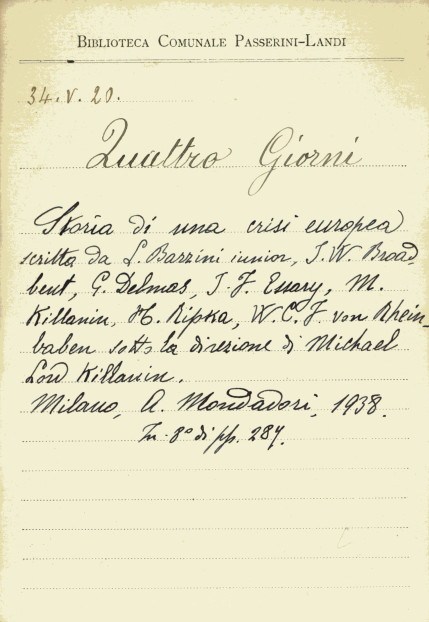 BIBLIOTECA COMUNALE PASSERINI-LANDI
34.V.20.
Quattro Giorni
Storia di una crisi europea
scritta da L. Barzini iunior, J. W. Broad-
bent, G. Delmas, J. F. Essary, M.
Killanin, H. Ripka, W. C. F. von Rhein-
baben sotto la direzione di Michael
Lord Killanin.
Milano, A. Mondadori, 1938.
In-8° di pp. 287.